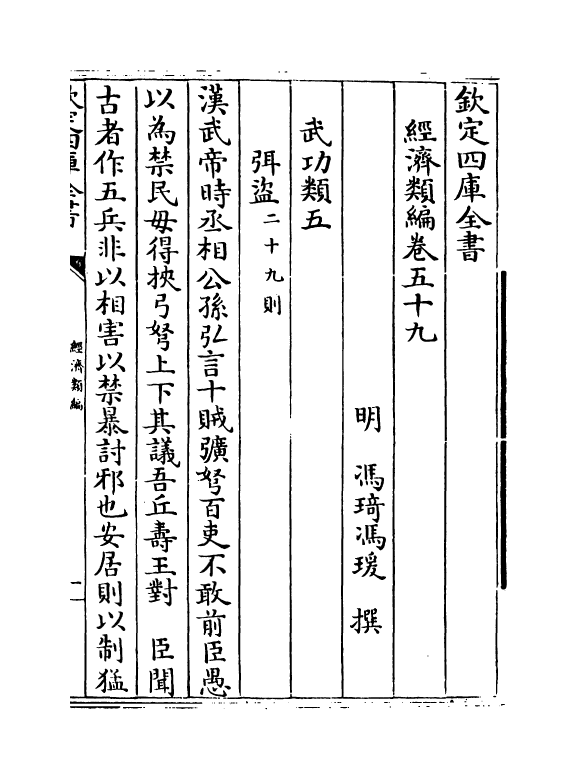 欽定四庫全書
經濟類編卷五十九
明 馮琦馮瑗 撰
武功類五
弭盜二十九則
漢武帝時丞相公孫弘言十賊彍弩百吏不敢前臣愚
以為禁民毋得挾弓弩上下其議吾丘壽王對 臣聞
古者作五兵非以相害以禁暴討邪也安居則以制猛
欽定四庫全書
經濟類編